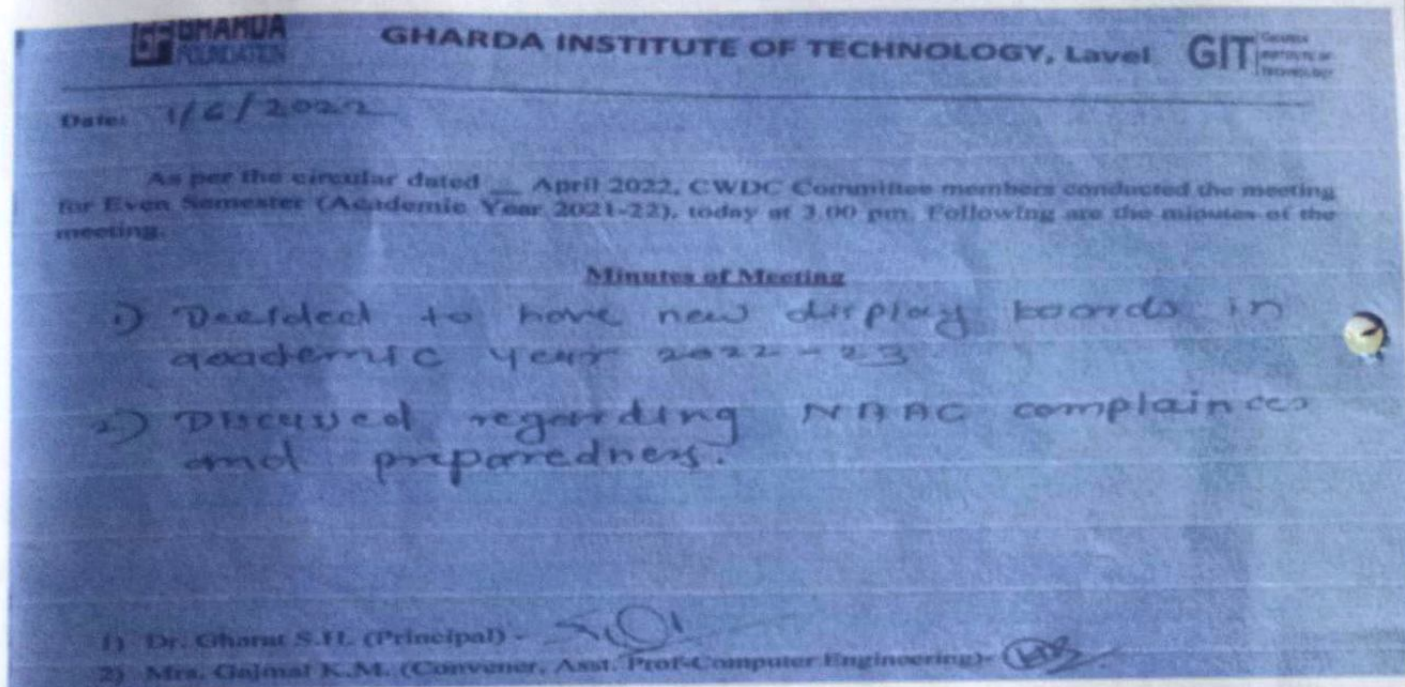 GHARDA
FOUNDATION
GHARDA INSTITUTE OF TECHNOLOGY, Lavel
GIT
GHARDA
INSTITUTE OF
TECHNOLOGY
Date: 1/6/2022
As per the circular dated __ April 2022, CWDC Committee members conducted the meeting
for Even Semester (Academic Year 2021-22), today at 3.00 pm. Following are the minutes of the
meeting.
Minutes of Meeting
1) Decided to have new display boards in
academic year 2022-23
2) Discussed regarding NAAC complainces
and preparedness.
1) Dr. Gharat S.H. (Principal) -
2) Mrs. Gajmal K.M. (Convener, Asst. Prof-Computer Engineering)-